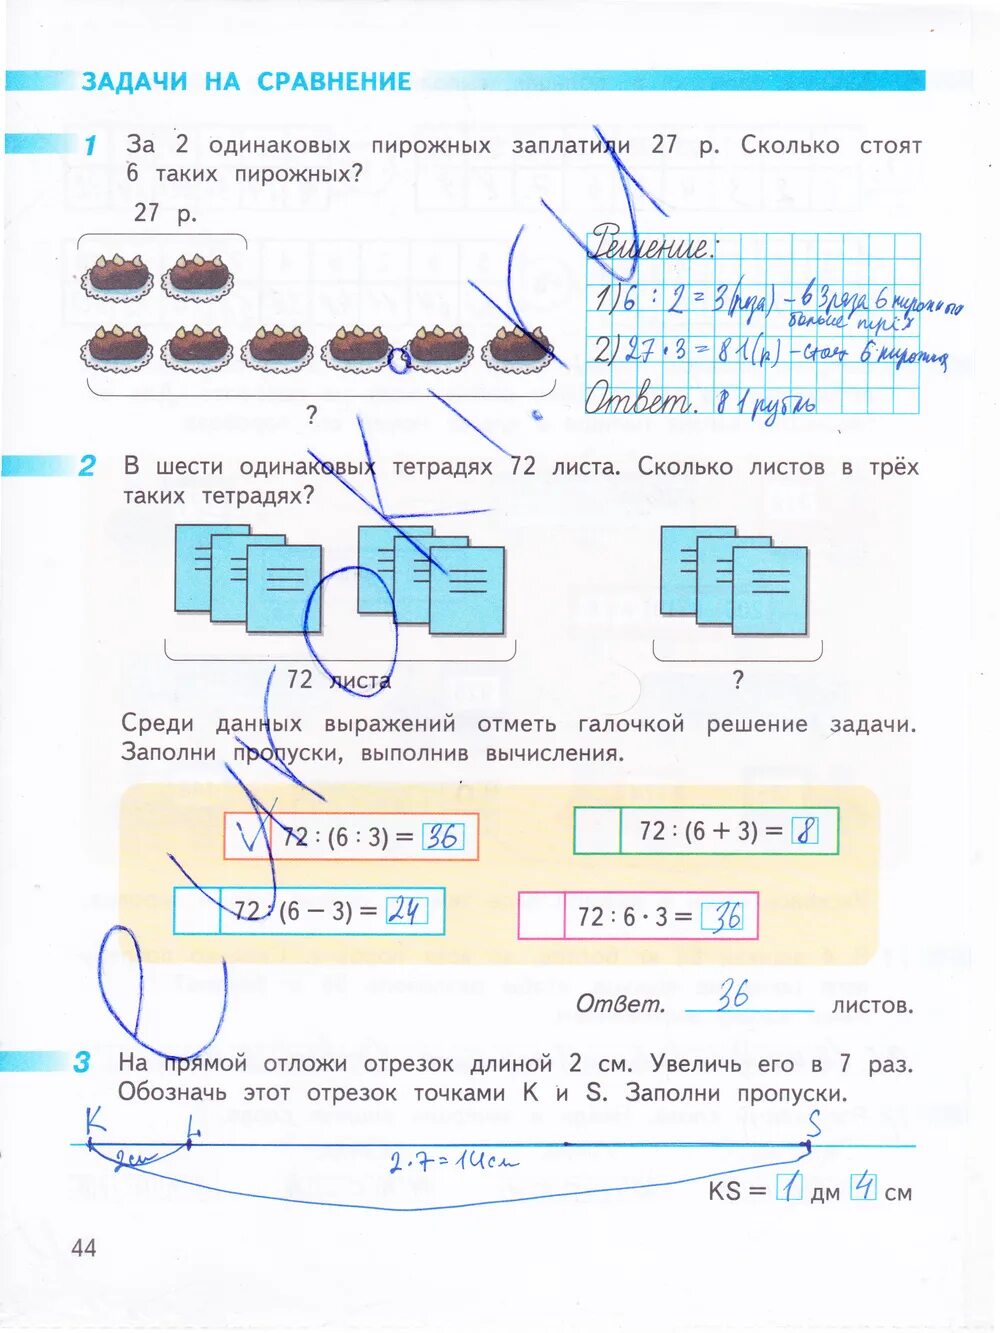 ЗАДАЧИ НА СРАВНЕНИЕ
1 За 2 одинаковых пирожных заплатили 27 р. Сколько стоят
6 таких пирожных?
27 р.
?
Решение:
1) 6 : 2 = 3 (раза) – в 3 раза 6 пирожных
больше трёх
2) 27 · 3 = 81 (р) – стоят 6 пирожных
Ответ. 81 рубль
2 В шести одинаковых тетрадях 72 листа. Сколько листов в трёх
таких тетрадях?
72 листа
?
Среди данных выражений отметь галочкой решение задачи.
Заполни пропуски, выполнив вычисления.
72 : (6 : 3) = 36
72 : (6 + 3) = 8
72 : (6 – 3) = 24
72 : 6 · 3 = 36
Ответ. 36 листов.
3 На прямой отложи отрезок длиной 2 см. Увеличь его в 7 раз.
Обозначь этот отрезок точками K и S. Заполни пропуски.
K L S
2см 2·7=14см
KS = 1 дм 4 см
44